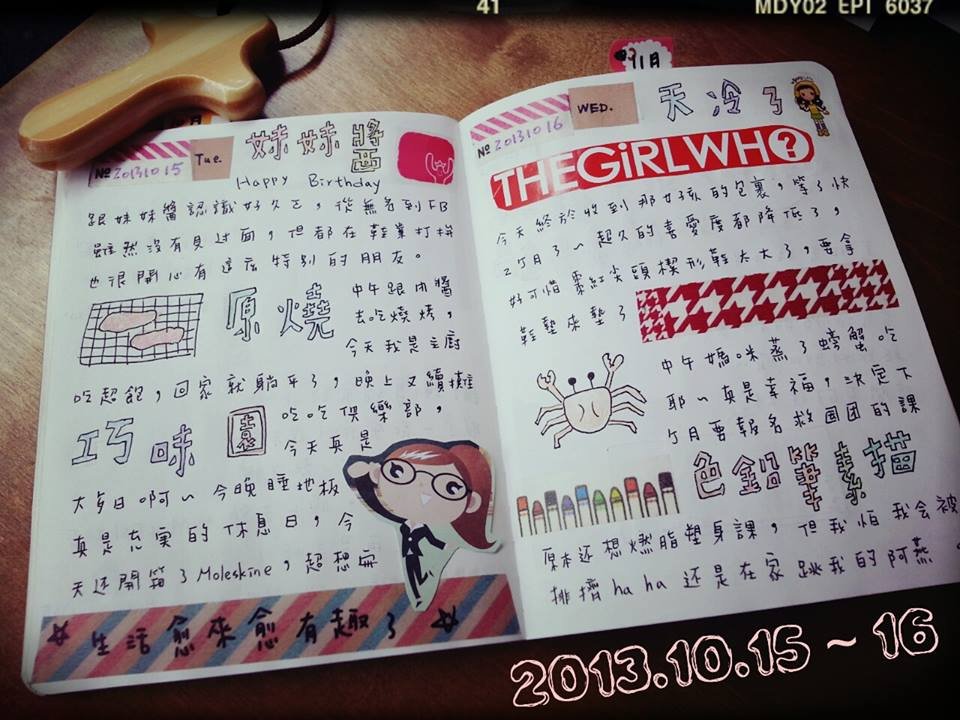 41
MDY02 EPT 6037
№ 20131015
Tue.
妹妹醬
Happy Birthday
跟妹妹醬認識好久了，從無名到FB
雖然沒有見过面，但都在鞋業打拼
也很開心有這么特別的朋友。
原燒
中午跟肉醬
去吃燒烤，
今天我是主廚
吃超飽，回家就躺平了，晚上又續攤
巧味園
吃吃俱樂部，
今天真是
大歹日啊～今晚睡地板
真是充實的休息日，今
天还開箱了Moleskine，超想安
生活愈來愈有趣了
91月
№ 20131016
WED.
天冷了
THEGiRLWHO?
今天終於收到那女孩的包裹，等了快
2个月了～超久的喜愛度都降低了，
好可惜棗紅尖頭楔形鞋太大了，要拿
鞋墊來墊了
中午媽咪蒸了螃蟹吃
耶～真是幸福，決定下
个月要報名救国团的課
色鉛筆素描
原本还想燃脂塑身課，但我怕我会被
排擠haha 还是在家跳我的阿燕。
2013.10.15 ~ 16